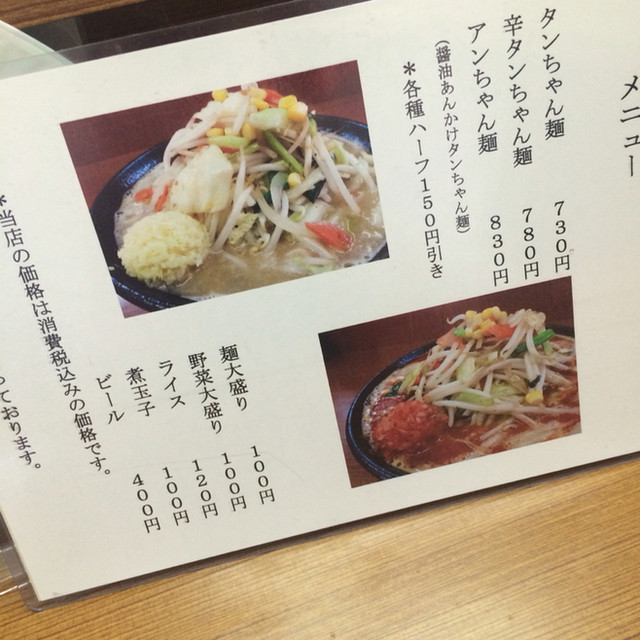 メニュー
タンちゃん麺 730円
辛タンちゃん麺 780円
アンちゃん麺 830円
（醤油あんかけタンちゃん麺）
＊各種ハーフ150円引き
麺大盛り 100円
野菜大盛り 100円
ライス 120円
煮玉子 100円
ビール 400円
＊当店の価格は消費税込みの価格です。
っております。